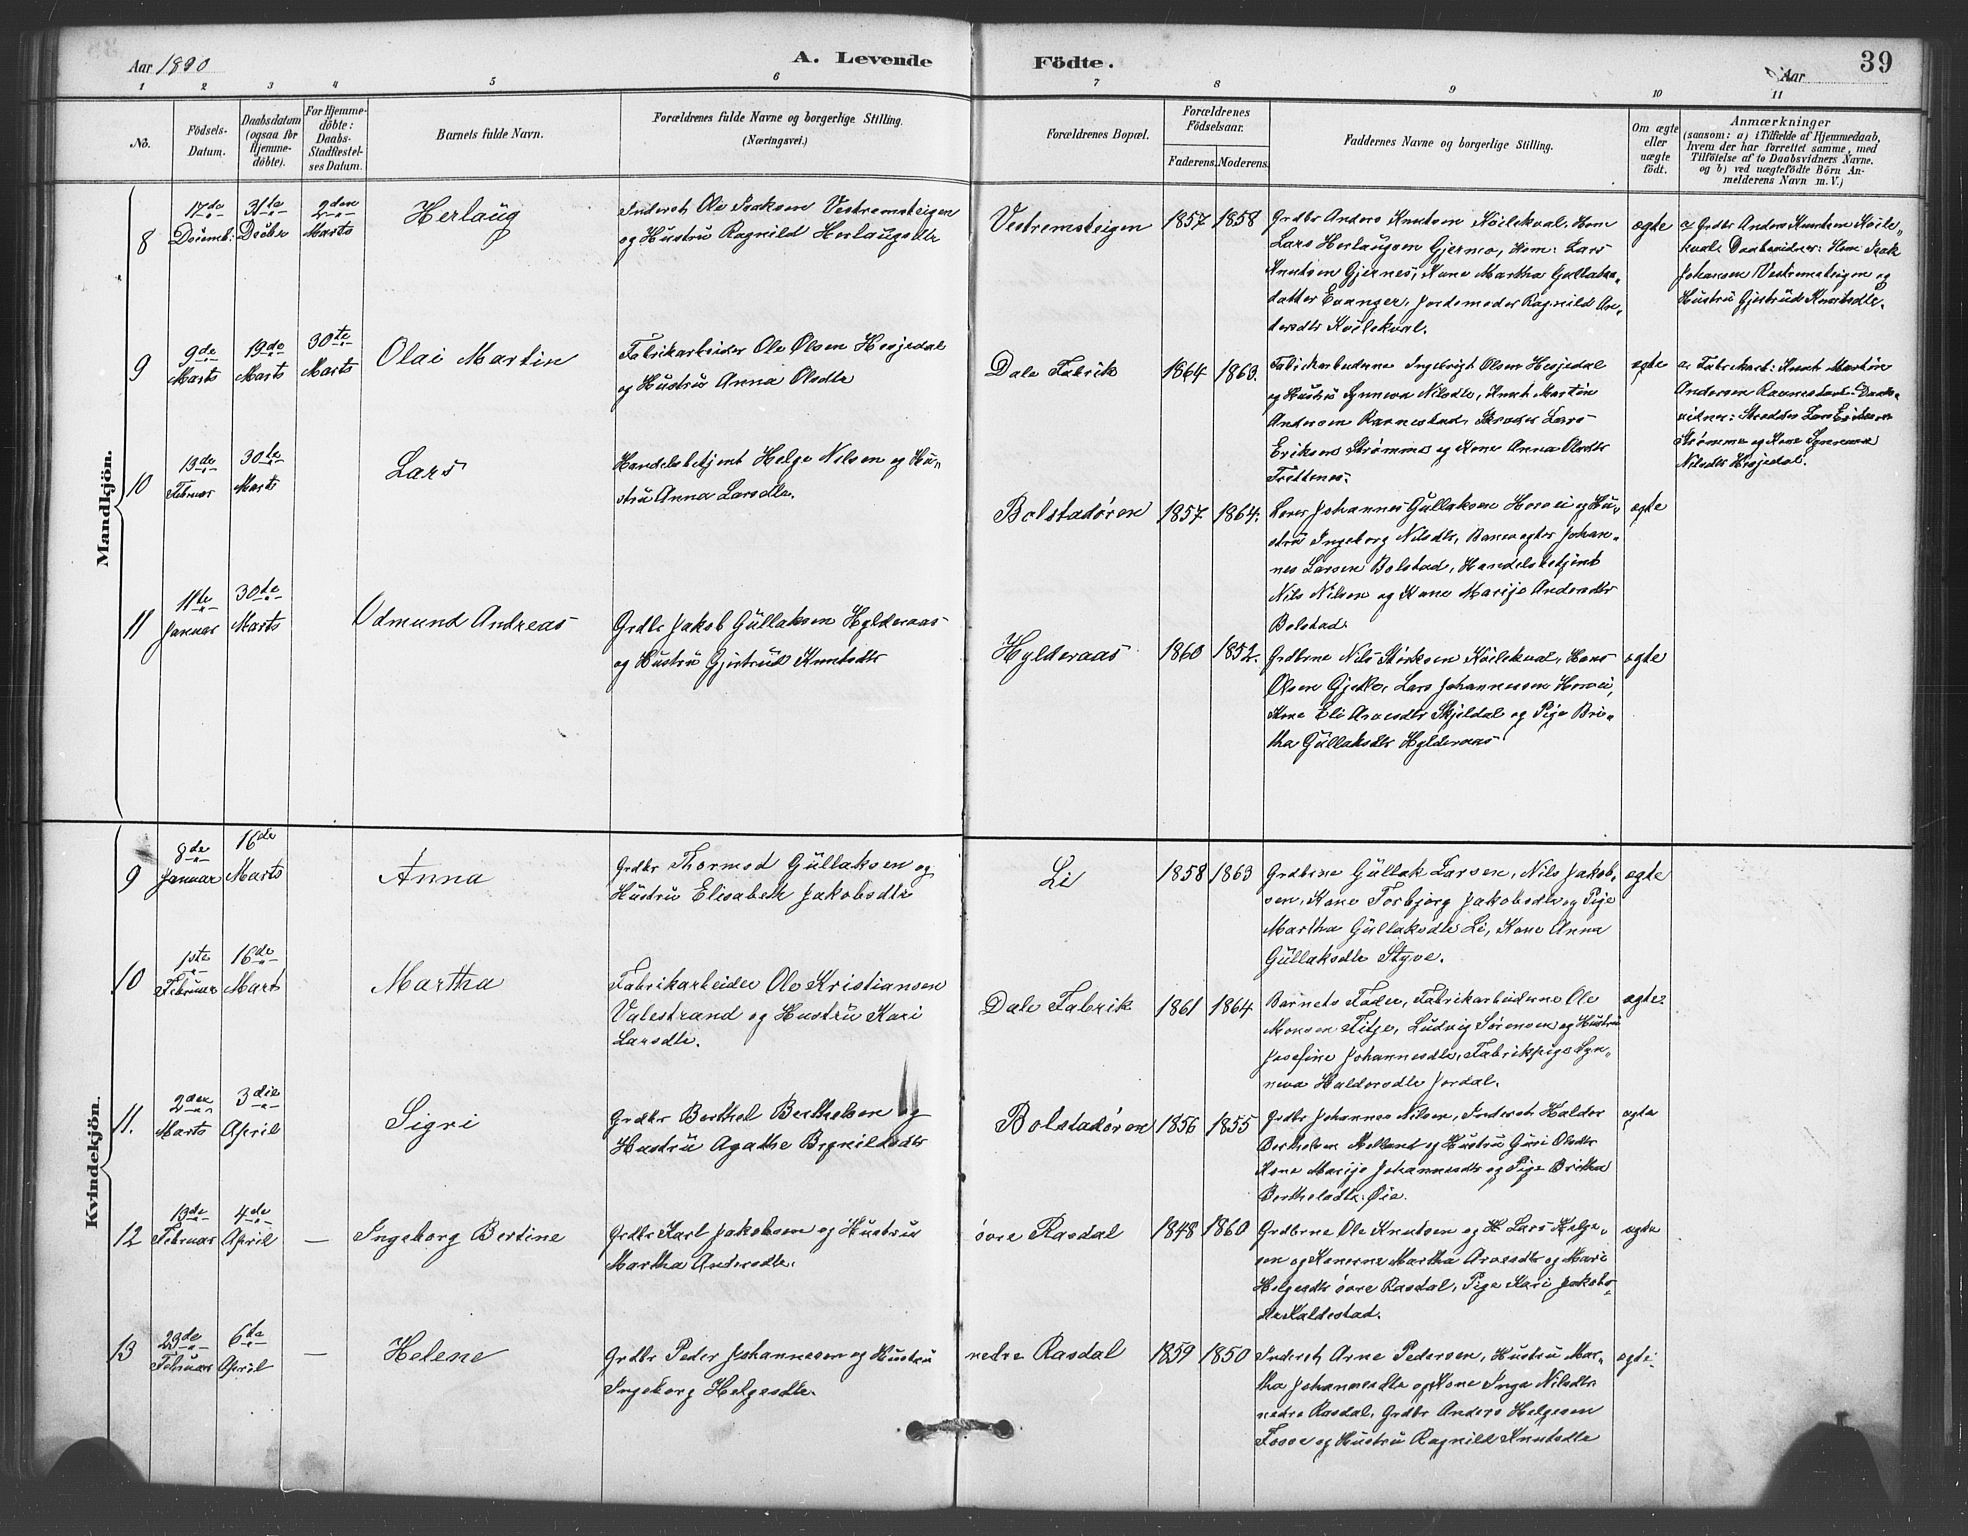 Aar 1890
A. Levende Födte.
Aar
39
1 2 3 4 5 6 7 8 9 10 11
No.
Födsels-Datum.
Daabsdatum (ogsaa for Hjemme-döbte).
For Hjemme-döbte: Daabs-Stadfæstel-ses Datum.
Barnets fulde Navn.
Forældrenes fulde Navne og borgerlige Stilling. (Næringsvei.)
Forældrenes Bopæl.
Forældrenes Födselsaar.
Faderens. Moderens.
Faddernes Navne og borgerlige Stilling.
Om ægte eller uægte födt.
Anmærkninger
(saasom: a) i Tilfælde af Hjemmedaab, hvem der har forrettet samme, med Tilföielse af to Daabsvidners Navne. og b) ved uægtefödte Börn An-melderens Navn m. V.)
Mandkjön.
8
17de Decemb:
31te Decbr
2den Marts
Herlaug
Inderst Ole Isaksen Vestremsteigen
og Hustru Ragnild Herlaugsdtr
Vestremsteigen
1857 1858
Grdbr Anders Knutsen Kvilekval, Hsm
Lars Herlaugsen Gjerme, Hsm: Lars
Knutsen Gjernes, Kone Martha Gullaks-
datter Evanger, Jordemoder Ragnild An-
dersdtr Kvilekval.
ægte
a Grdbr Anders Knutsen Kvile-
kval: Daabsvidner: Hsm Isak
Johansen Vestremsteigen og
Hustru Gjertrud Knutsdtr.
9
9de Marts
19de Marts
30te Marts
Olai Martin
Fabrikarbeider Ole Olsen Hesjedal
og Hustru Anna Olsdtr
Dale Fabrik
1864 1863.
Fabrikarbeiderne Ingebrigt Olsen Hesjedal
og Hustru Synneva Nilsdtr, Knut Martin
Andersen Ravnestad, Skræder Lars
Eriksen Strømme og Kone Anna Olsdtr
Trettenes.
ægte
a. Fabrikarb: Knut Martin
Andersen Ravnestad. Daabs-
vidner: Skrædder Lars Eriksen
Strømme og Kone Synneva
Nilsdtr Hesjedal.
10
19de Februar
30te Marts
Lars
Handelsbetjent Helge Nilsen og Hu-
stru Anna Larsdtr.
Bolstadøren
1857 1864.
Lærer Johannes Gullaksen Horvei og Hu-
stru Ingeborg Nilsdtr, Banevogter Johan-
nes Larsen Bolstad, Handelsbetjent
Nils Nilsen og Kone Marije Andersdtr
Bolstad
ægte
11
11te Januar
30te Marts
Odmund Andreas
Grdbr Jakob Gullaksen Hylderaas
og Hustru Gjertrud Knutsdtr
Hylderaas
1860 1852.
Grdbrne Nils Størksen Kvilekval, Hans
Olsen Gjetle, Lars Johannessen Horvei,
Kone Eli Arnesdtr Skjeldal og Pige Bri-
tha Gullaksdtr Hylderaas
ægte
Kvindekjön.
9
8de Januar
16de Marts
Anna
Grdbr Thormod Gullaksen og
Hustru Elisabeth Jakobsdtr
Li
1858 1863
Grdbrne Gullak Larsen, Nils Jakob-
sen, Kone Torbjørg Jakobsdtr og Pige
Martha Gullaksdtr Li, Kone Anna
Gullaksdtr Styve.
ægte
10
1ste Februar
16de Marts
Martha
Fabrikarbeider Ole Kristiansen
Valestrand og Hustru Kari
Larsdtr.
Dale Fabrik
1861 1864
Barnets Fader, Fabrikarbeiderne Ole
Monsen Titje, Ludvig Sørensen og Hustru
Josefine Johannesdtr, Fabrikpige Syn-
neva Haldorsdtr Jordal.
ægte
11.
2den Marts
3die April
Sigri
Grdbr Berthel Berthelsen og
Hustru Agathe Brynildsdtr
Bolstadøren
1856 1855
Grdbr Johannes Nilsen, Inderst Haldor
Berthelsen Melland og Hustru Guri Olsdtr
Kone Marije Johannesdtr og Pige Britha
Berthelsdtr Øie.
ægte
12
19de Februar
4de April
—
Ingeborg Bertine
Grdbr Karl Jakobsen og Hustru
Martha Andersdtr.
øvre Rasdal
1848 1860
Grdbrne Ole Knutsen og H Lars Helge-
sen og Konerne Martha Arnesdtr og Mari
Helgesdtr øvre Rasdal, Pige Kari Jakobs-
dtr Kaldestad.
ægte
13
23de Februar
6te April
—
Helene
Grdbr Peder Johannesen og Hustru
Ingeborg Helgesdtr.
nedre Rasdal
1859 1850
Inderst Arne Pedersen, Hustru Mar-
tha Johannesdtr og Kone Inga Nilsdtr
nedre Rasdal, Grdbr Anders Helgesen
Fosse og Hustru Ragnild Knutsdtr
ægte